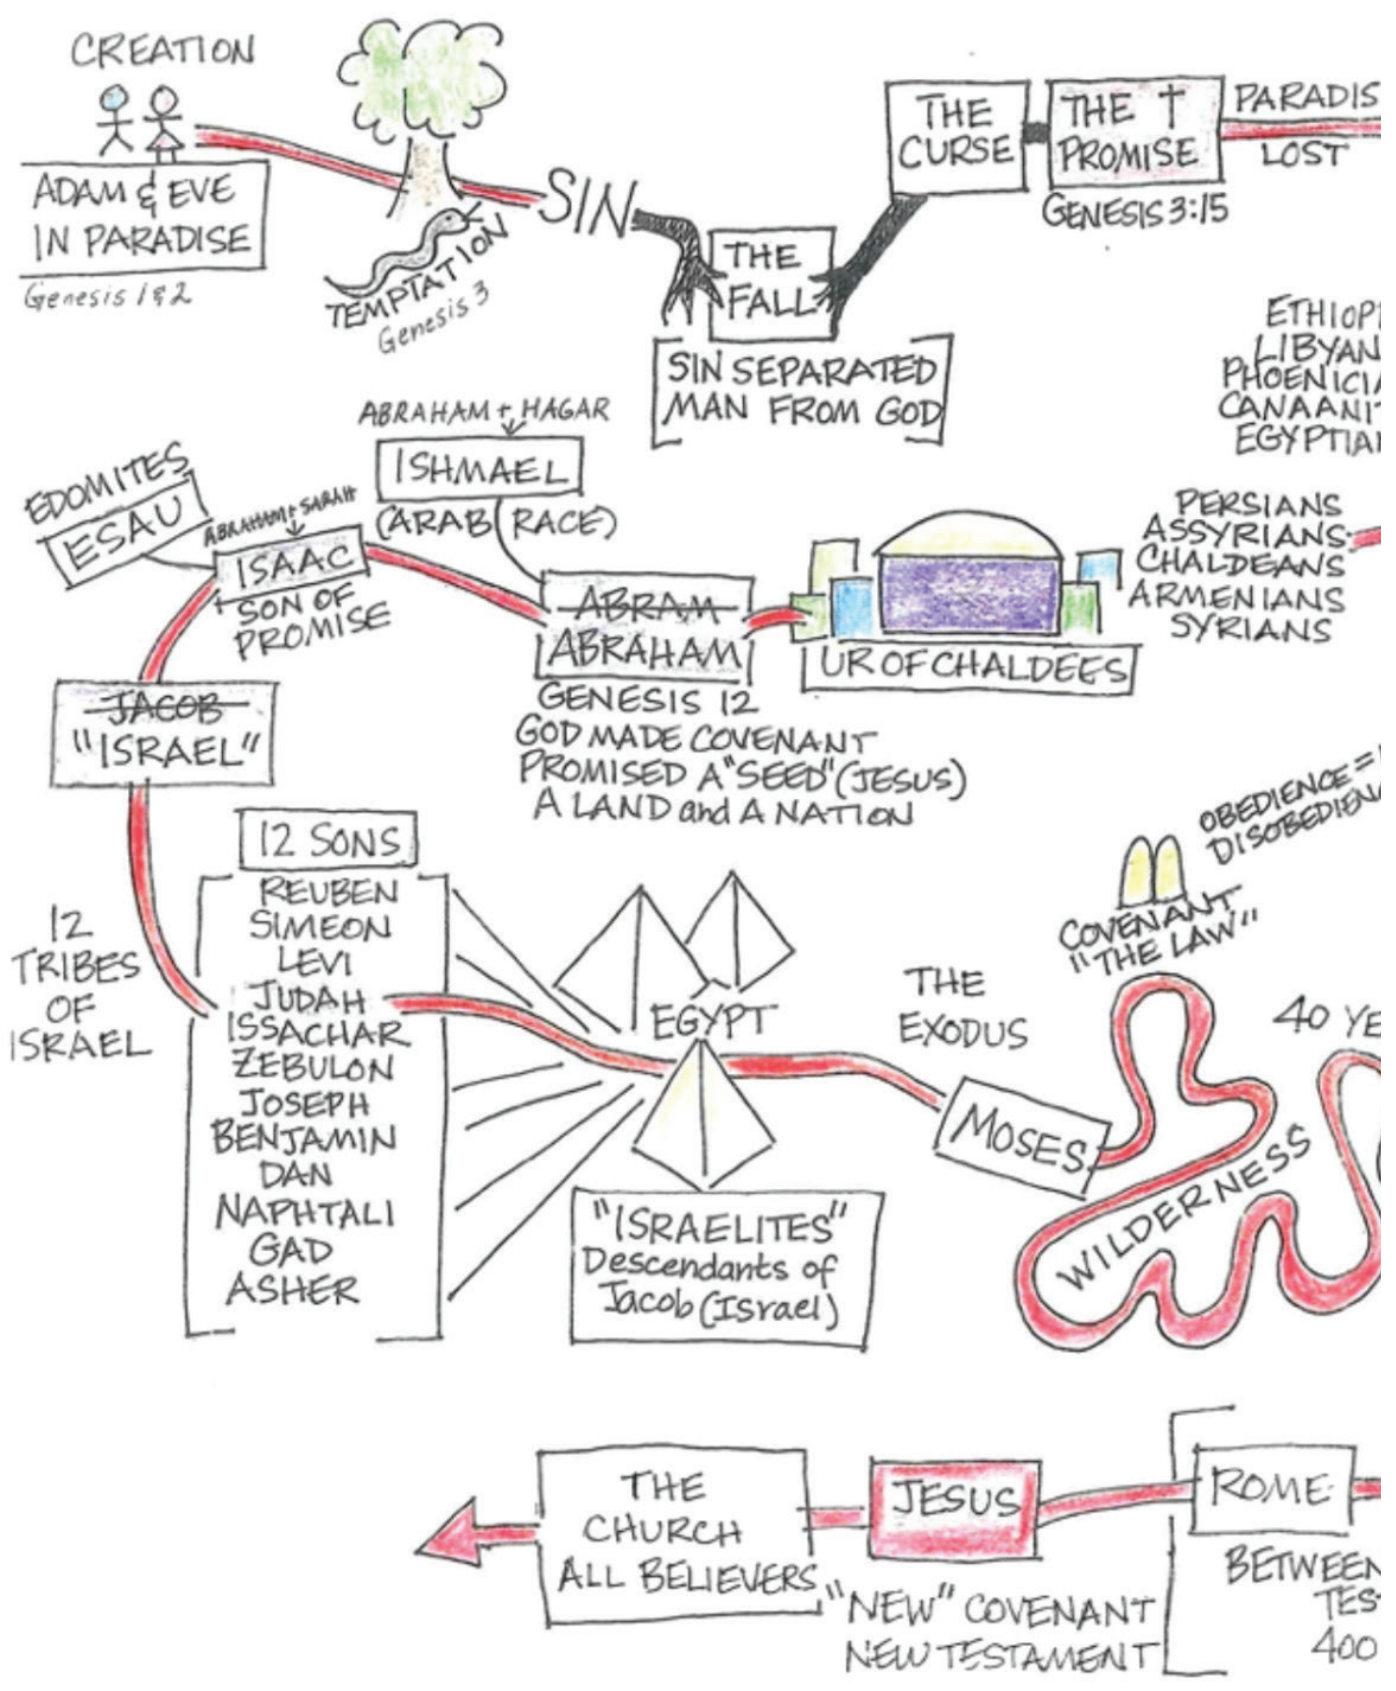 CREATION
ADAM & EVE
IN PARADISE
Genesis 1 & 2
TEMPTATION
Genesis 3
SIN
THE
FALL
SIN SEPARATED
MAN FROM GOD
THE
CURSE
THE †
PROMISE
GENESIS 3:15
PARADIS
LOST
ETHIOPI
LIBYAN
PHOENICIA
CANAANIT
EGYPTIAN
PERSIANS
ASSYRIANS
CHALDEANS
ARMENIANS
SYRIANS
UR OF CHALDEES
ABRAHAM + HAGAR
ISHMAEL
(ARAB RACE)
ABRAM
ABRAHAM
GENESIS 12
GOD MADE COVENANT
PROMISED A "SEED" (JESUS)
A LAND and A NATION
EDOMITES
ESAU
ABRAHAM + SARAH
ISAAC
SON OF
PROMISE
JACOB
"ISRAEL"
12
TRIBES
OF
ISRAEL
12 SONS
REUBEN
SIMEON
LEVI
JUDAH
ISSACHAR
ZEBULON
JOSEPH
BENJAMIN
DAN
NAPHTALI
GAD
ASHER
EGYPT
"ISRAELITES"
Descendants of
Jacob (Israel)
THE
EXODUS
MOSES
COVENANT
"THE LAW"
OBEDIENCE =
DISOBEDIENC
40 YE
WILDERNESS
THE
CHURCH
ALL BELIEVERS
JESUS
"NEW" COVENANT
NEW TESTAMENT
ROME
BETWEEN
TES
400